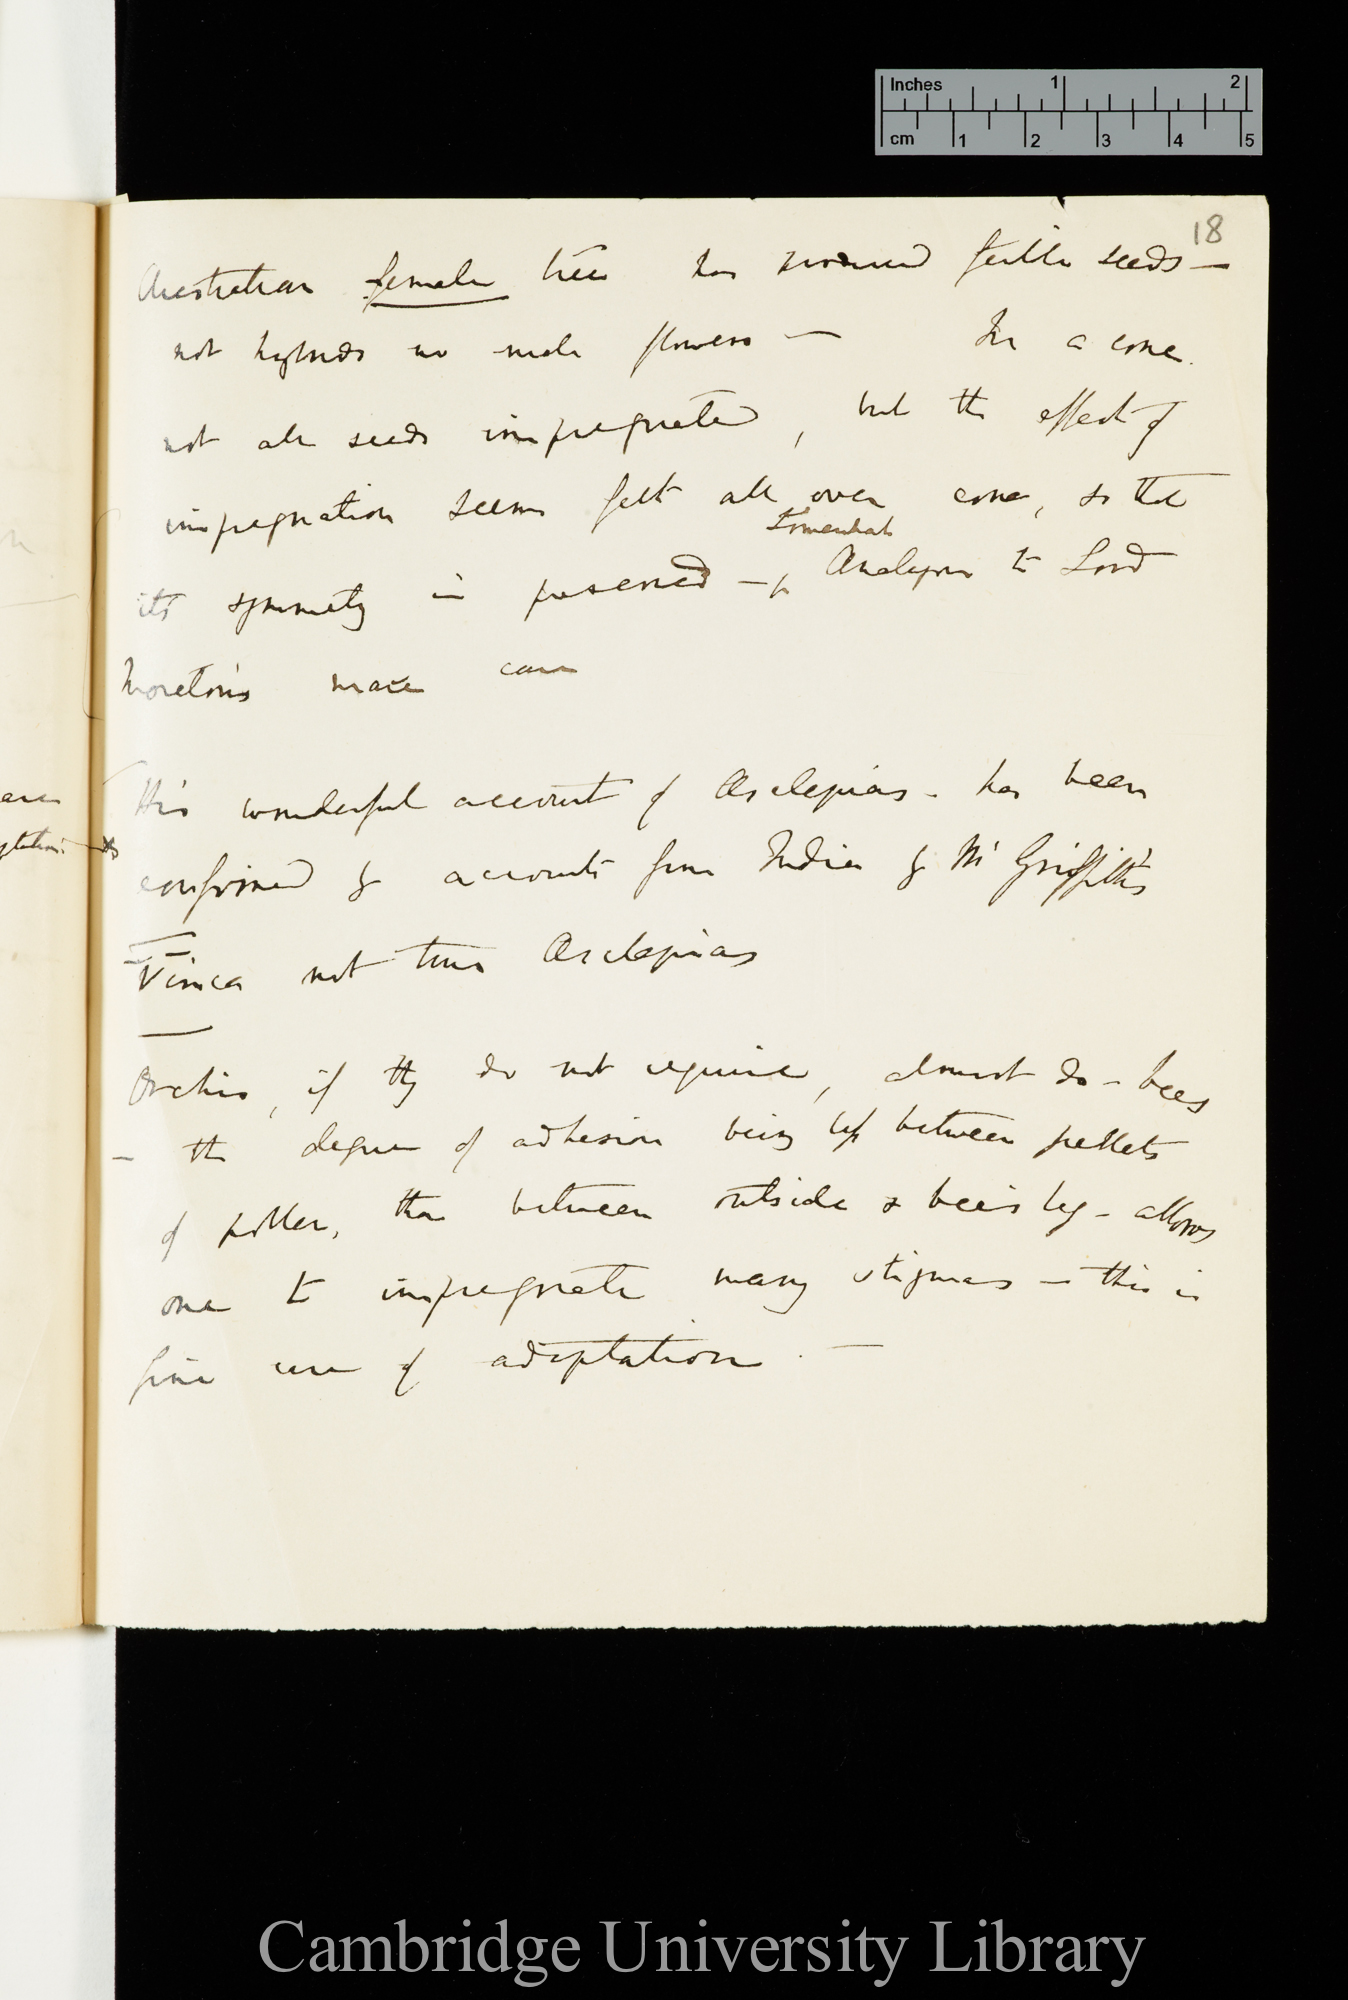 Inches 1 2
cm 1 2 3 4 5
18
Australian female tree has produced fertile seeds —
not hybrids no male flowers — In a cone
not all seeds impregnated, but the effect of
impregnation seems felt all over cone, so that
somewhat
its symmetry is preserved — Analogous to Lord
Moreton's mare case
His wonderful account of Asclepias - has been
confirmed by accounts from India by Mr Griffiths
Vinca not true Asclepias
Orchis, if they do not require, almost do - bees
— the degree of adhesion being less between pellets
of pollen, than between outside & bee's leg - allows
one to impregnate many stigmas — this is
fine case of adaptation. —
Cambridge University Library